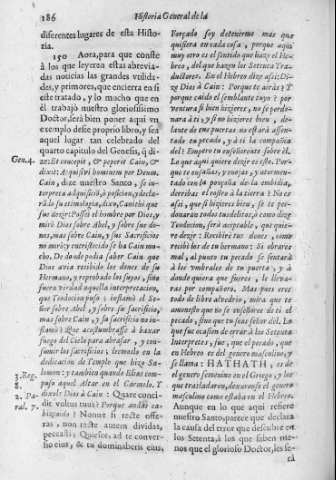 186
Historia General de la
diferentes lugares de esta Histo-
ria.
150 Aora, para que conste
à los que leyeren estas abrevia-
das noticias las grandes vtilida-
des, y primores, que encierra en si
este tratado, y lo mucho que en
èl trabajò nuestro gloriosissimo
Doctor, serà bien poner aqui vn
exemplo deste proprio libro, y sea
aquel lugar tan celebrado del
quarto capitulo del Genesis, q̃ di-
Gen. 4.
ze: Et concepit, & peperit Cain, &
dixit: Acquisivi hominem per Deum.
Cain, dize nuestro Santo, se in-
terpreta
sue dezir: Possei el hombre por Dios, y
mirò Dios sobre Abel, y sobre sus do-
nes, mas sobre Cain, y sus Sacrificios
no mirò; y entristeciose Cain mu-
cho. De donde podia saber Cain que
Dios avia recibido los dones de su
Hermano, y reprobado los suyos, sino
fuera verdad aquella interpretacion
que Teodocion puso: inflamò el Se-
ñor sobre Abel, y sobre su sacrificio,
mas sobre Cain, y su sacrificio no in-
flamò? Que acostumbrasse à baxar
fuego del Cielo para abrasar, y con-
sumir los sacrificios; leemoslo en la
dedicacion de Templo que hizo Sa-
3. Reg.
lomon: y tambien quando Elias com-
8.
puso aquel Altar en el Carmelo. Y
2. Pa-
dixole Dios à Cain: Quare conci-
ral. 7.
dit vultus tuus? Porque
Nonne si recte offe-
ras, non recte autem dividas,
peccasti? Quiesce, ad te conver-
sio eius, & tu dominaberis eius,
Forçado soy detenerme mas que
quisiera en cada cosa, porque aqui
muy otro es el sentido que haze el He-
breo, del que hazen los Setenta Tra-
ductores. En el Hebreo dize assi: Di-
ze Dios à Cain: Porque te airas? Y
porque caido el semblante tuyo? por
ventura si bien hizieres, no se perdo-
narà à ti; y si no hizieres bien, de-
lante de tus puertas no estarà assen-
tado tu pecado. Y à ti la compañia
del; Empero tu te enseñorea sobre èl.
Lo que aqui quiere dezir es esto. Por-
que te ensañas, y enojas, y atormen-
tado con la ponçoña de la embidia,
derribas el rostro à la tierra? No es
assi, que si hizieres bien, se te per-
donaran todos tus delitos; ò como dize
Teodocion, serà aceptable, que quie-
re dezir: Recibirè tus dones, como
recibì los de tu hermano: Si obrares
mal, al punto tu pecado se sentarà
à los vmbrales de tu puerta; y à
donde quiera que fueres, le lleva-
ras por compañero. Mas pues eres
todo de libre alvedrio, mira que te
amonesto que no te enseñoree de ti el
pecado, sino que tu seas señor del. Lo
que fue ocasion de errar à los Setenta
Interpretes, fue, que el pecado, que
en Hebreo es del genero masculino, y
se llama: HATHATH, es de
el genero femenino en el Griego, y los
que trasladaron, dexaron el genero
masculino como estaba en el Hebreo.
Aunque en lo que aqui refiere
nuestro Santo, parece que declara
la causa del error que descubre en
los Setenta, à los que saben me-
nos que el glorioso Doctor, les se-
rà